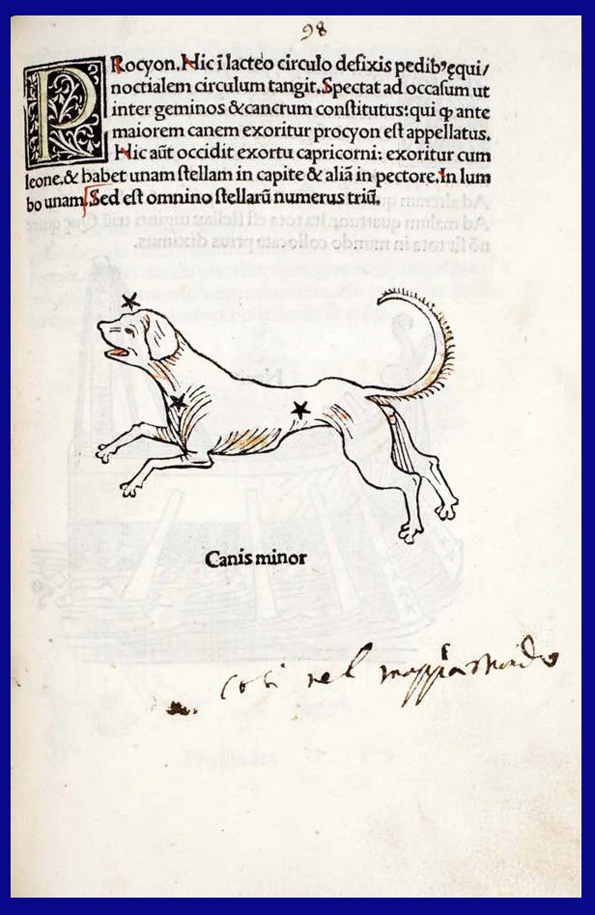 98
PRocyon. Hic ī lacteo circulo defixis pedibꝰ ęqui/
noctialem circulum tangit. Spectat ad occasum ut
inter geminos & cancrum constitutus: qui ꝙ ante
maiorem canem exoritur procyon est appellatus.
Hic aūt occidit exortu capricorni: exoritur cum
leone. & habet unam stellam in capite & aliā in pectore. In lum
bo unam. Sed est omnino stellarū numerus triū.
Canis minor
cosi nel mappamondo